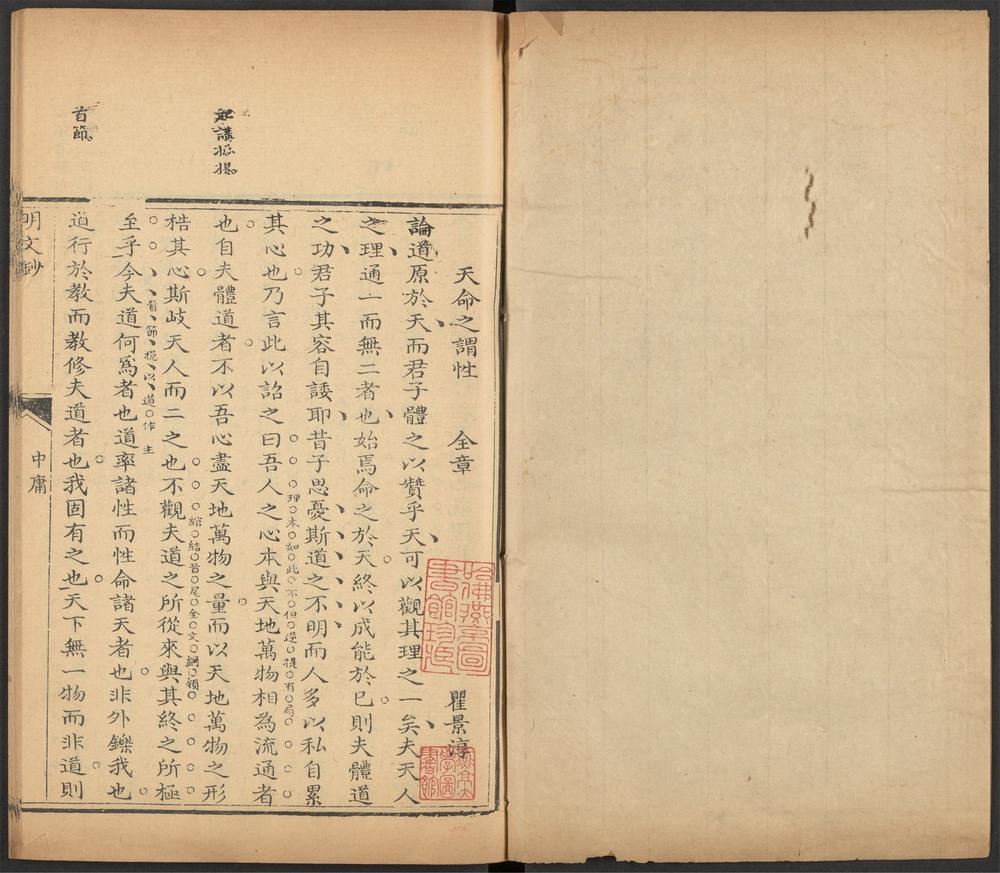 天命之謂性　全章
瞿景淳
論道原於天而君子體之以贊乎天可以觀其理之一矣夫天人
之理通一而無二者也始焉命之於天終以成能於己則夫體道
之功君子其容自諉耶昔子思憂斯道之不明而人多以私自累
理本如此不但逆提有局
其心也乃言此以詔之曰吾人之心本與天地萬物相為流通者
也自夫體道者不以吾心盡天地萬物之量而以天地萬物之形
綰結首尾全文綱領
梏其心斯歧天人而二之也不觀夫道之所從來與其終之所極
首節提以道作主
至乎今夫道何為者也道率諸性而性命諸天者也非外鑠我也
道行於教而教修夫道者也我固有之也天下無一物而非道則
講
首節
明文鈔
中庸
哈佛燕京圖書館珍藏